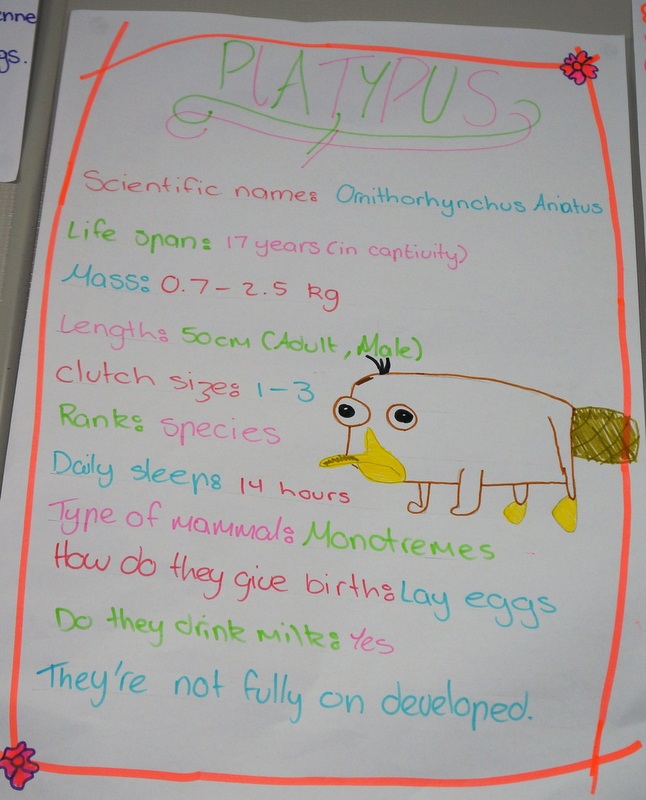 enne
gs.
PLATYPUS
Scientific name: Ornithorhynchus Anatus
Life span: 17 years (in captivity)
Mass: 0.7 - 2.5 kg
Length: 50cm (Adult, Male)
clutch size: 1-3
Rank: species
Daily sleep: 14 hours
Type of mammal: Monotremes
How do they give birth: Lay eggs
Do they drink milk: Yes
They're not fully on developed.